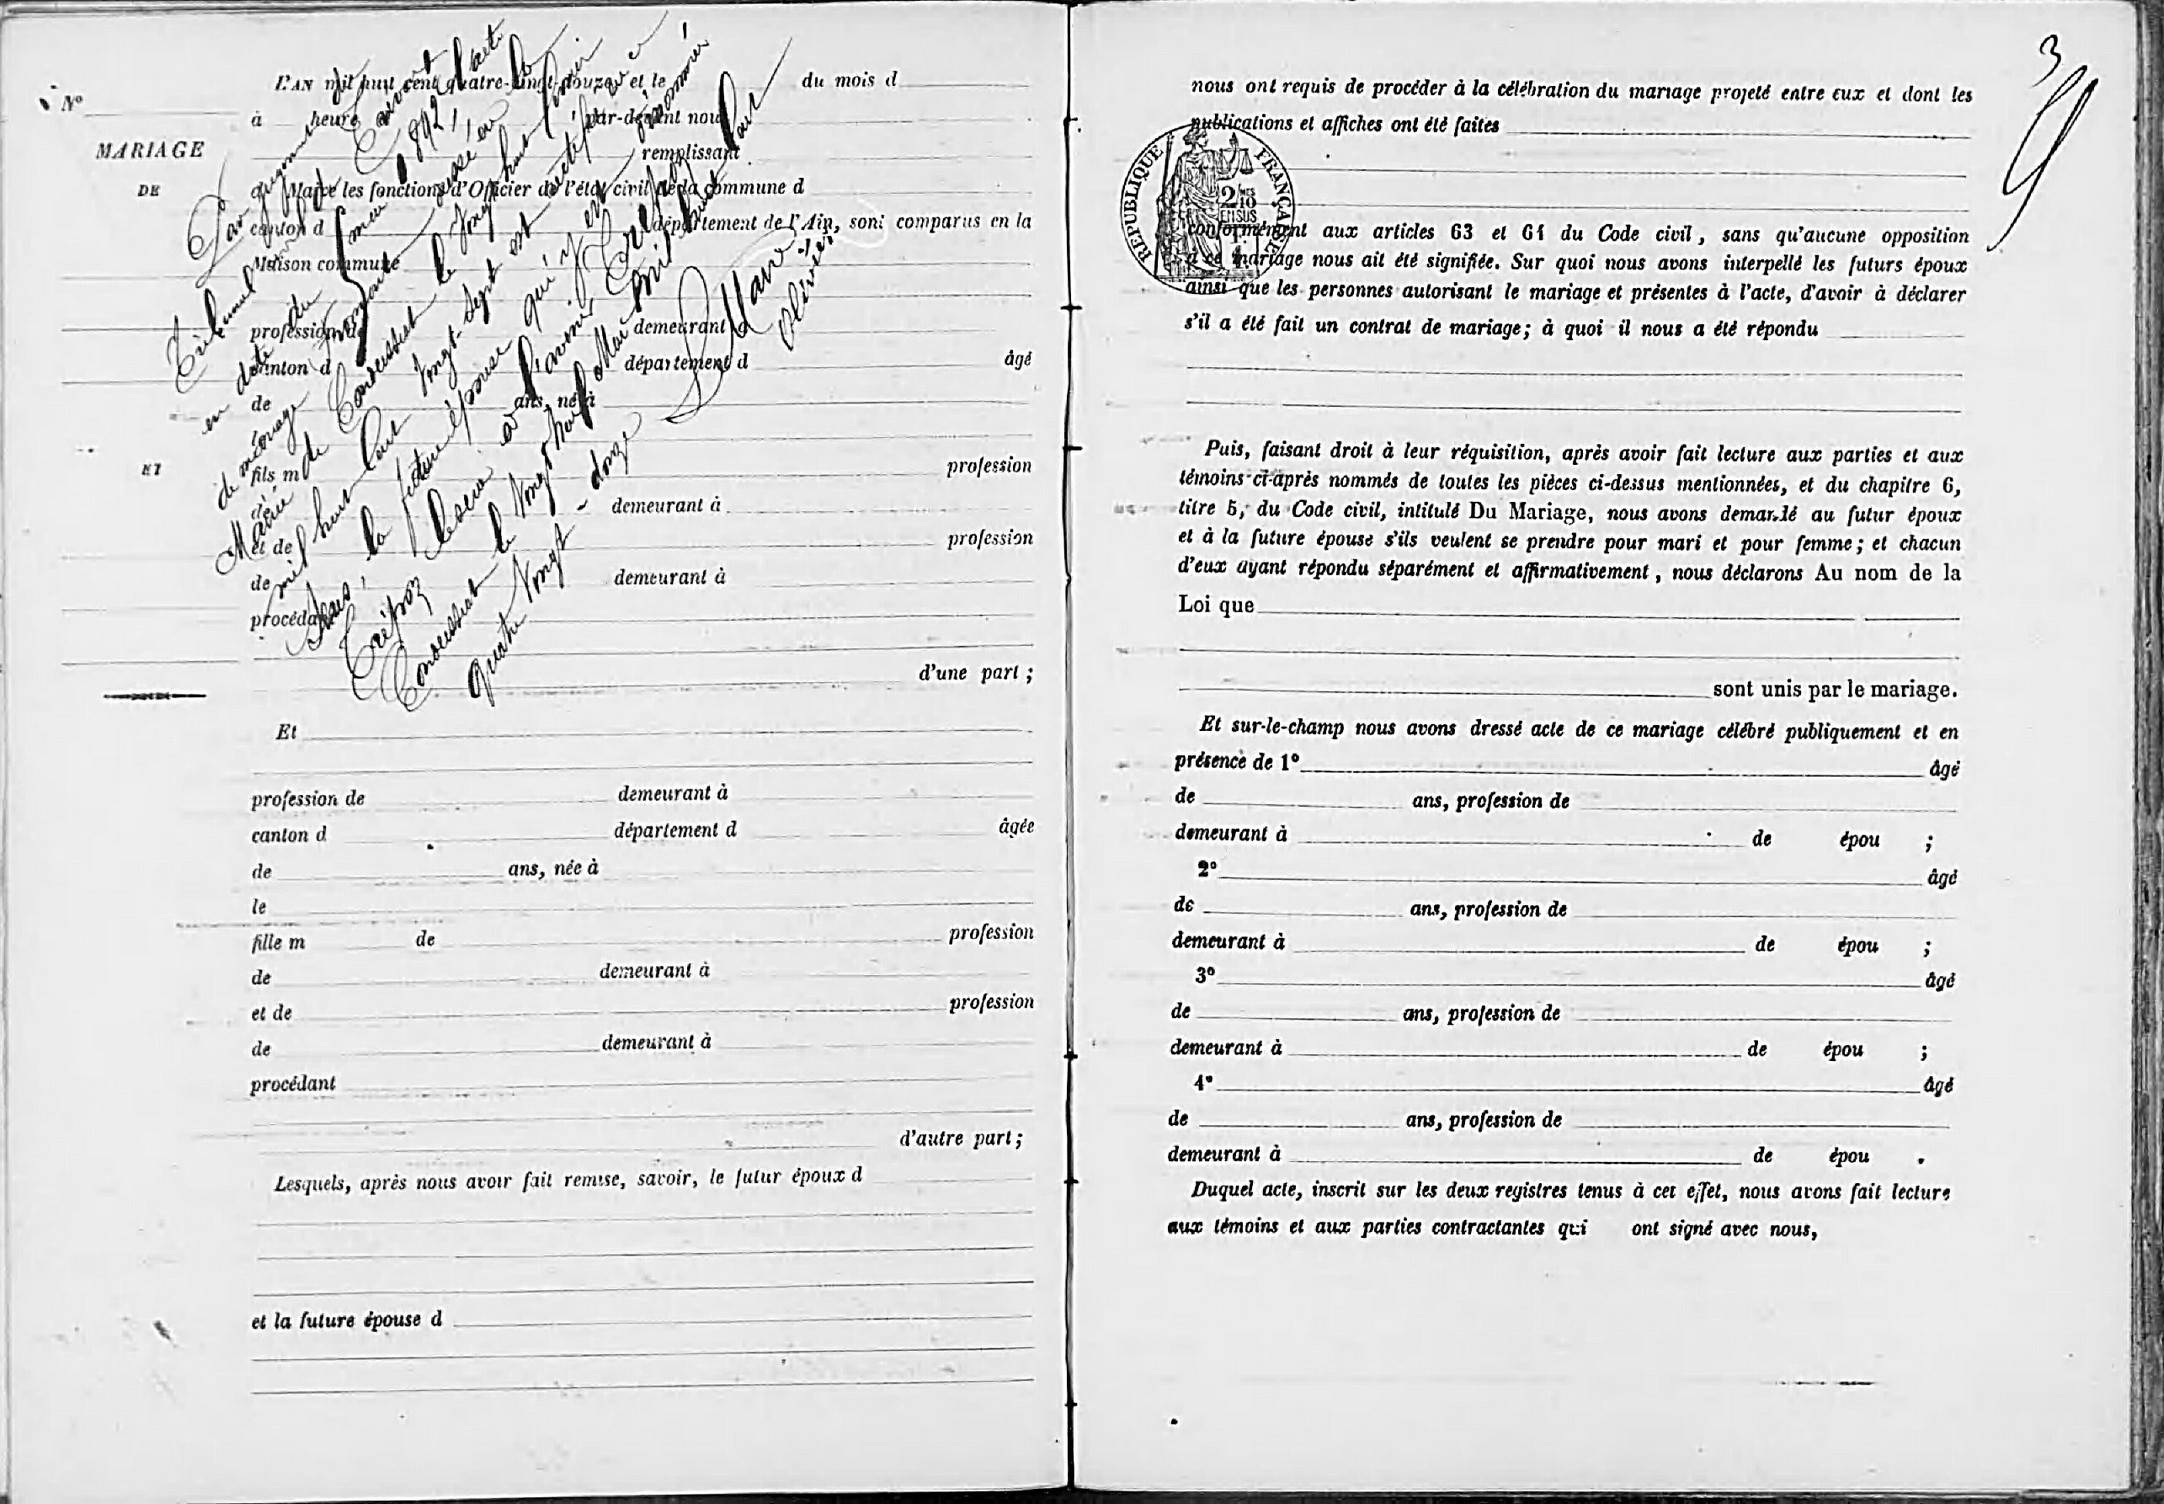 Nº
MARIAGE
DE
ET
L'AN mil huit cent quatre-vingt-douze et le du mois d
à heure par-devant nous
remplissant
Maire les fonctions d'Officier de l'état civil de la commune d
canton d département de l'Ain, sont comparus en la
Maison commune
profession de demeurant à
canton d département d âgé
de ans, né à
fils m profession
de demeurant à
et de profession
de demeurant à
procédant
d'une part ;
Et
profession de demeurant à
canton d département d âgée
de ans, née à
le
fille m de profession
de demeurant à
et de profession
de demeurant à
procédant
d'autre part ;
Lesquels, après nous avoir fait remise, savoir, le futur époux d
et la future épouse d
Par jugement du
Tribunal civil de Trévoux
en date du 1892, l'acte
de mariage dressé en la
Mairie de Condeissiat le vingt huit
mil huit cent vingt-sept est rectifié en ce
sens, la future épouse qui y est dénommée
Tréffoz sera à l'avenir Tréffoz
Condeissiat le vingt neuf Mai mil huit cent
quatre vingt-douze
Le Maire
Olivier
3
nous ont requis de procéder à la célébration du mariage projeté entre eux et dont les
publications et affiches ont été faites
RÉPUBLIQUE FRANÇAISE
2/10 EN SUS
conformément aux articles 63 et 64 du Code civil, sans qu'aucune opposition
à ce mariage nous ait été signifiée. Sur quoi nous avons interpellé les futurs époux
ainsi que les personnes autorisant le mariage et présentes à l'acte, d'avoir à déclarer
s'il a été fait un contrat de mariage; à quoi il nous a été répondu
Puis, faisant droit à leur réquisition, après avoir fait lecture aux parties et aux
témoins ci-après nommés de toutes les pièces ci-dessus mentionnées, et du chapitre 6,
titre 5, du Code civil, intitulé Du Mariage, nous avons demandé au futur époux
et à la future épouse s'ils veulent se prendre pour mari et pour femme; et chacun
d'eux ayant répondu séparément et affirmativement, nous déclarons Au nom de la
Loi que
sont unis par le mariage.
Et sur-le-champ nous avons dressé acte de ce mariage célébré publiquement et en
présence de 1º âgé
de ans, profession de
demeurant à de épou ;
2º âgé
de ans, profession de
demeurant à de épou ;
3º âgé
de ans, profession de
demeurant à de épou ;
4º âgé
de ans, profession de
demeurant à de épou .
Duquel acte, inscrit sur les deux registres tenus à cet effet, nous avons fait lecture
aux témoins et aux parties contractantes qui ont signé avec nous,